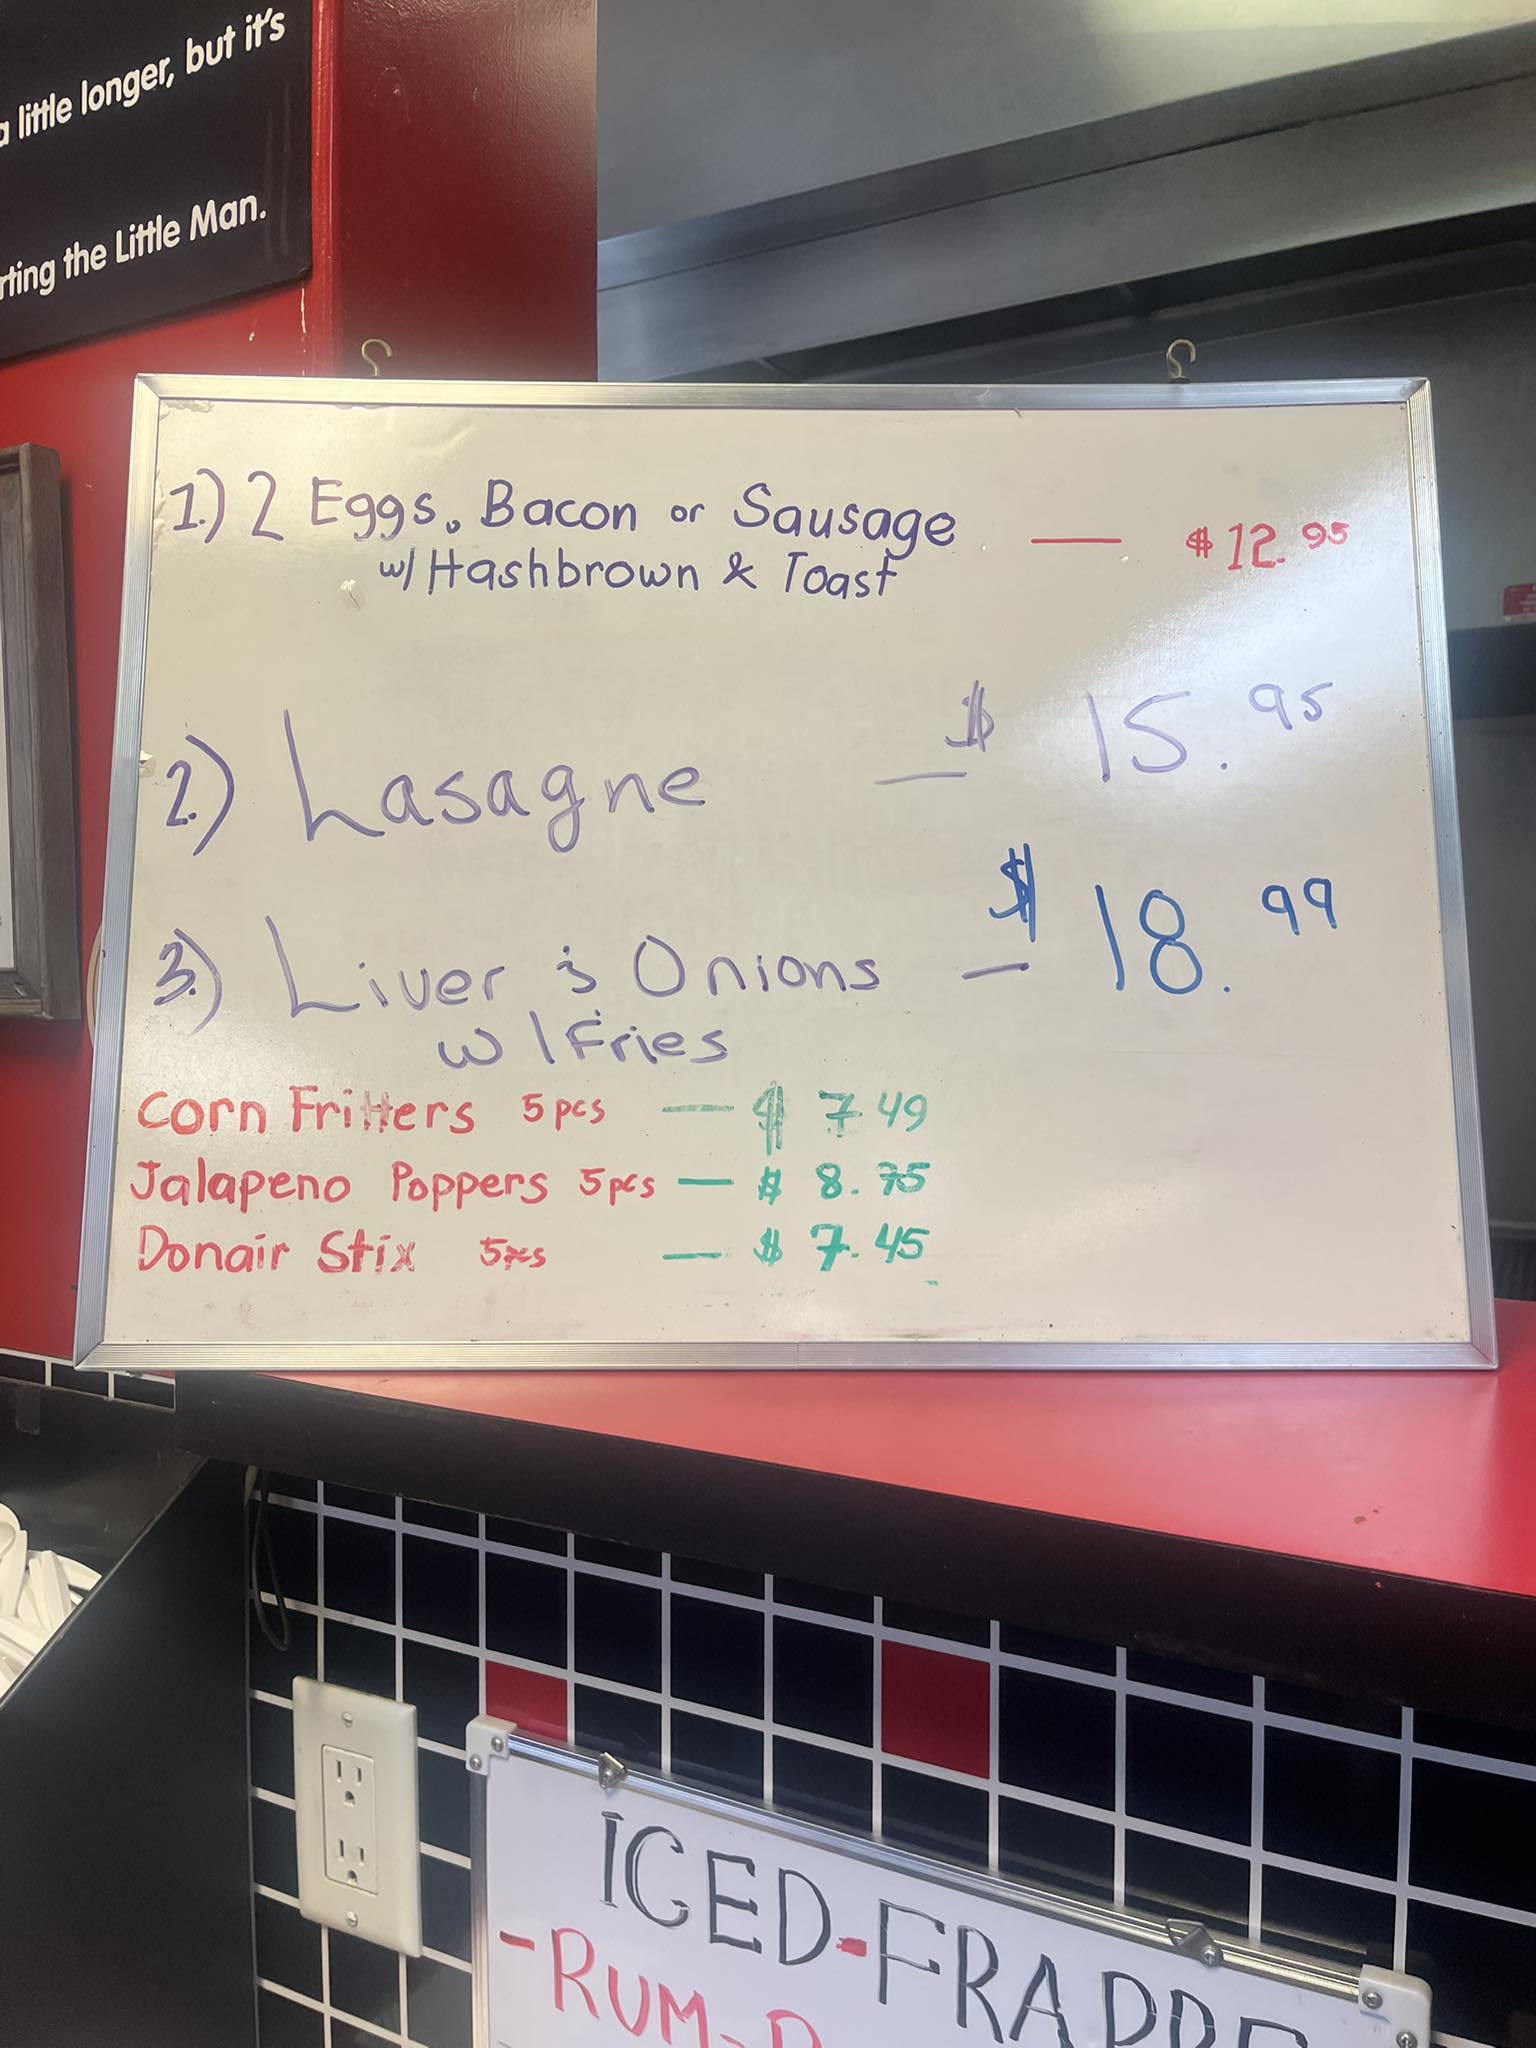 a little longer, but it's
rting the Little Man.
1.) 2 Eggs, Bacon or Sausage — $12.95
w/ Hashbrown & Toast
2.) Lasagne — $15.95
3.) Liver & Onions — $18.99
w/ Fries
Corn Fritters 5pcs — $7.49
Jalapeno Poppers 5pcs — $8.75
Donair Stix 5pcs — $7.45
ICED-FRAPPE
-RUM-